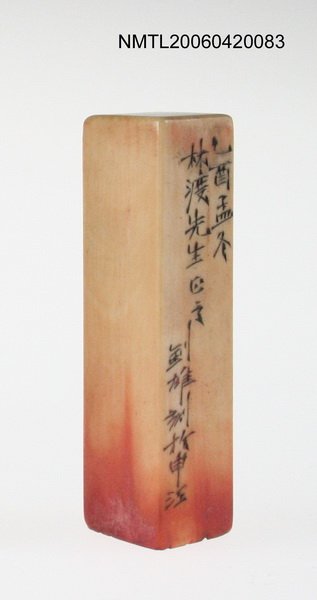 NMTL20060420083
乙酉孟冬
林淡先生正之
劍雄刻於申江